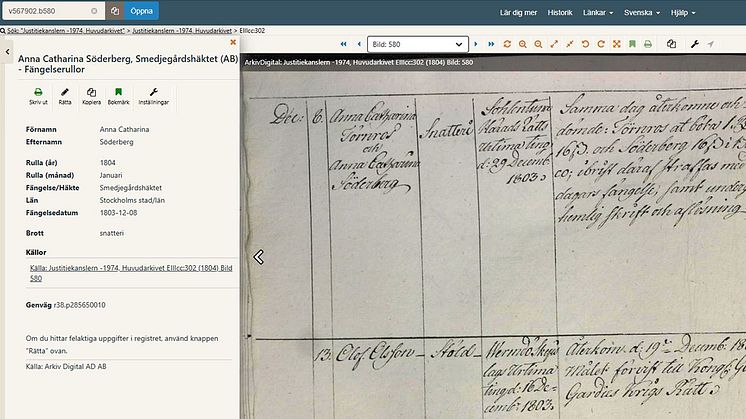 v567902.b580
Öppna
Lär dig mer Historik Länkar Svenska Hjälp
Sök: "Justitiekanslern -1974, Huvudarkivet" > Justitiekanslern -1974, Huvudarkivet > EIIIcc:302
Bild: 580
Anna Catharina Söderberg, Smedjegårdshäktet (AB)
- Fängelserullor
Skriv ut Rätta Kopiera Bokmärk Inställningar
Förnamn Anna Catharina
Efternamn Söderberg
Rulla (år) 1804
Rulla (månad) Januari
Fängelse/Häkte Smedjegårdshäktet
Län Stockholms stad/län
Fängelsedatum 1803-12-08
Brott snatteri
Källor
Källa: Justitiekanslern -1974, Huvudarkivet EIIIcc:302 (1804) Bild
580
Genväg r38.p285650010
Om du hittar felaktiga uppgifter i registret, använd knappen
"Rätta" ovan.
Källa: Arkiv Digital AD AB
ArkivDigital: Justitiekanslern -1974, Huvudarkivet EIIIcc:302 (1804) Bild: 580
Dec:
Anna Catharina
Törnros
och
Anna Catharina
Söderberg
Snatteri
Sollentuna
Härads Rätts
Urtima ting
d: 29 Decemb.
1803.
Samma dag återkomne och
dömde: Törnros at böta
16 och Söderberg 16
co; i brist däraf straffas med
dagars fängelse, samt under
hemlig skrift och aflösning
13. Olof Olsson Stöld
Wermdö Skepps
lags Urtima
ting d: 16 De-
cemb: 1803.
Återkom d: 19 Decemb: 18
Målet förvist till Kongl: G
Gardies Krigs Rätt